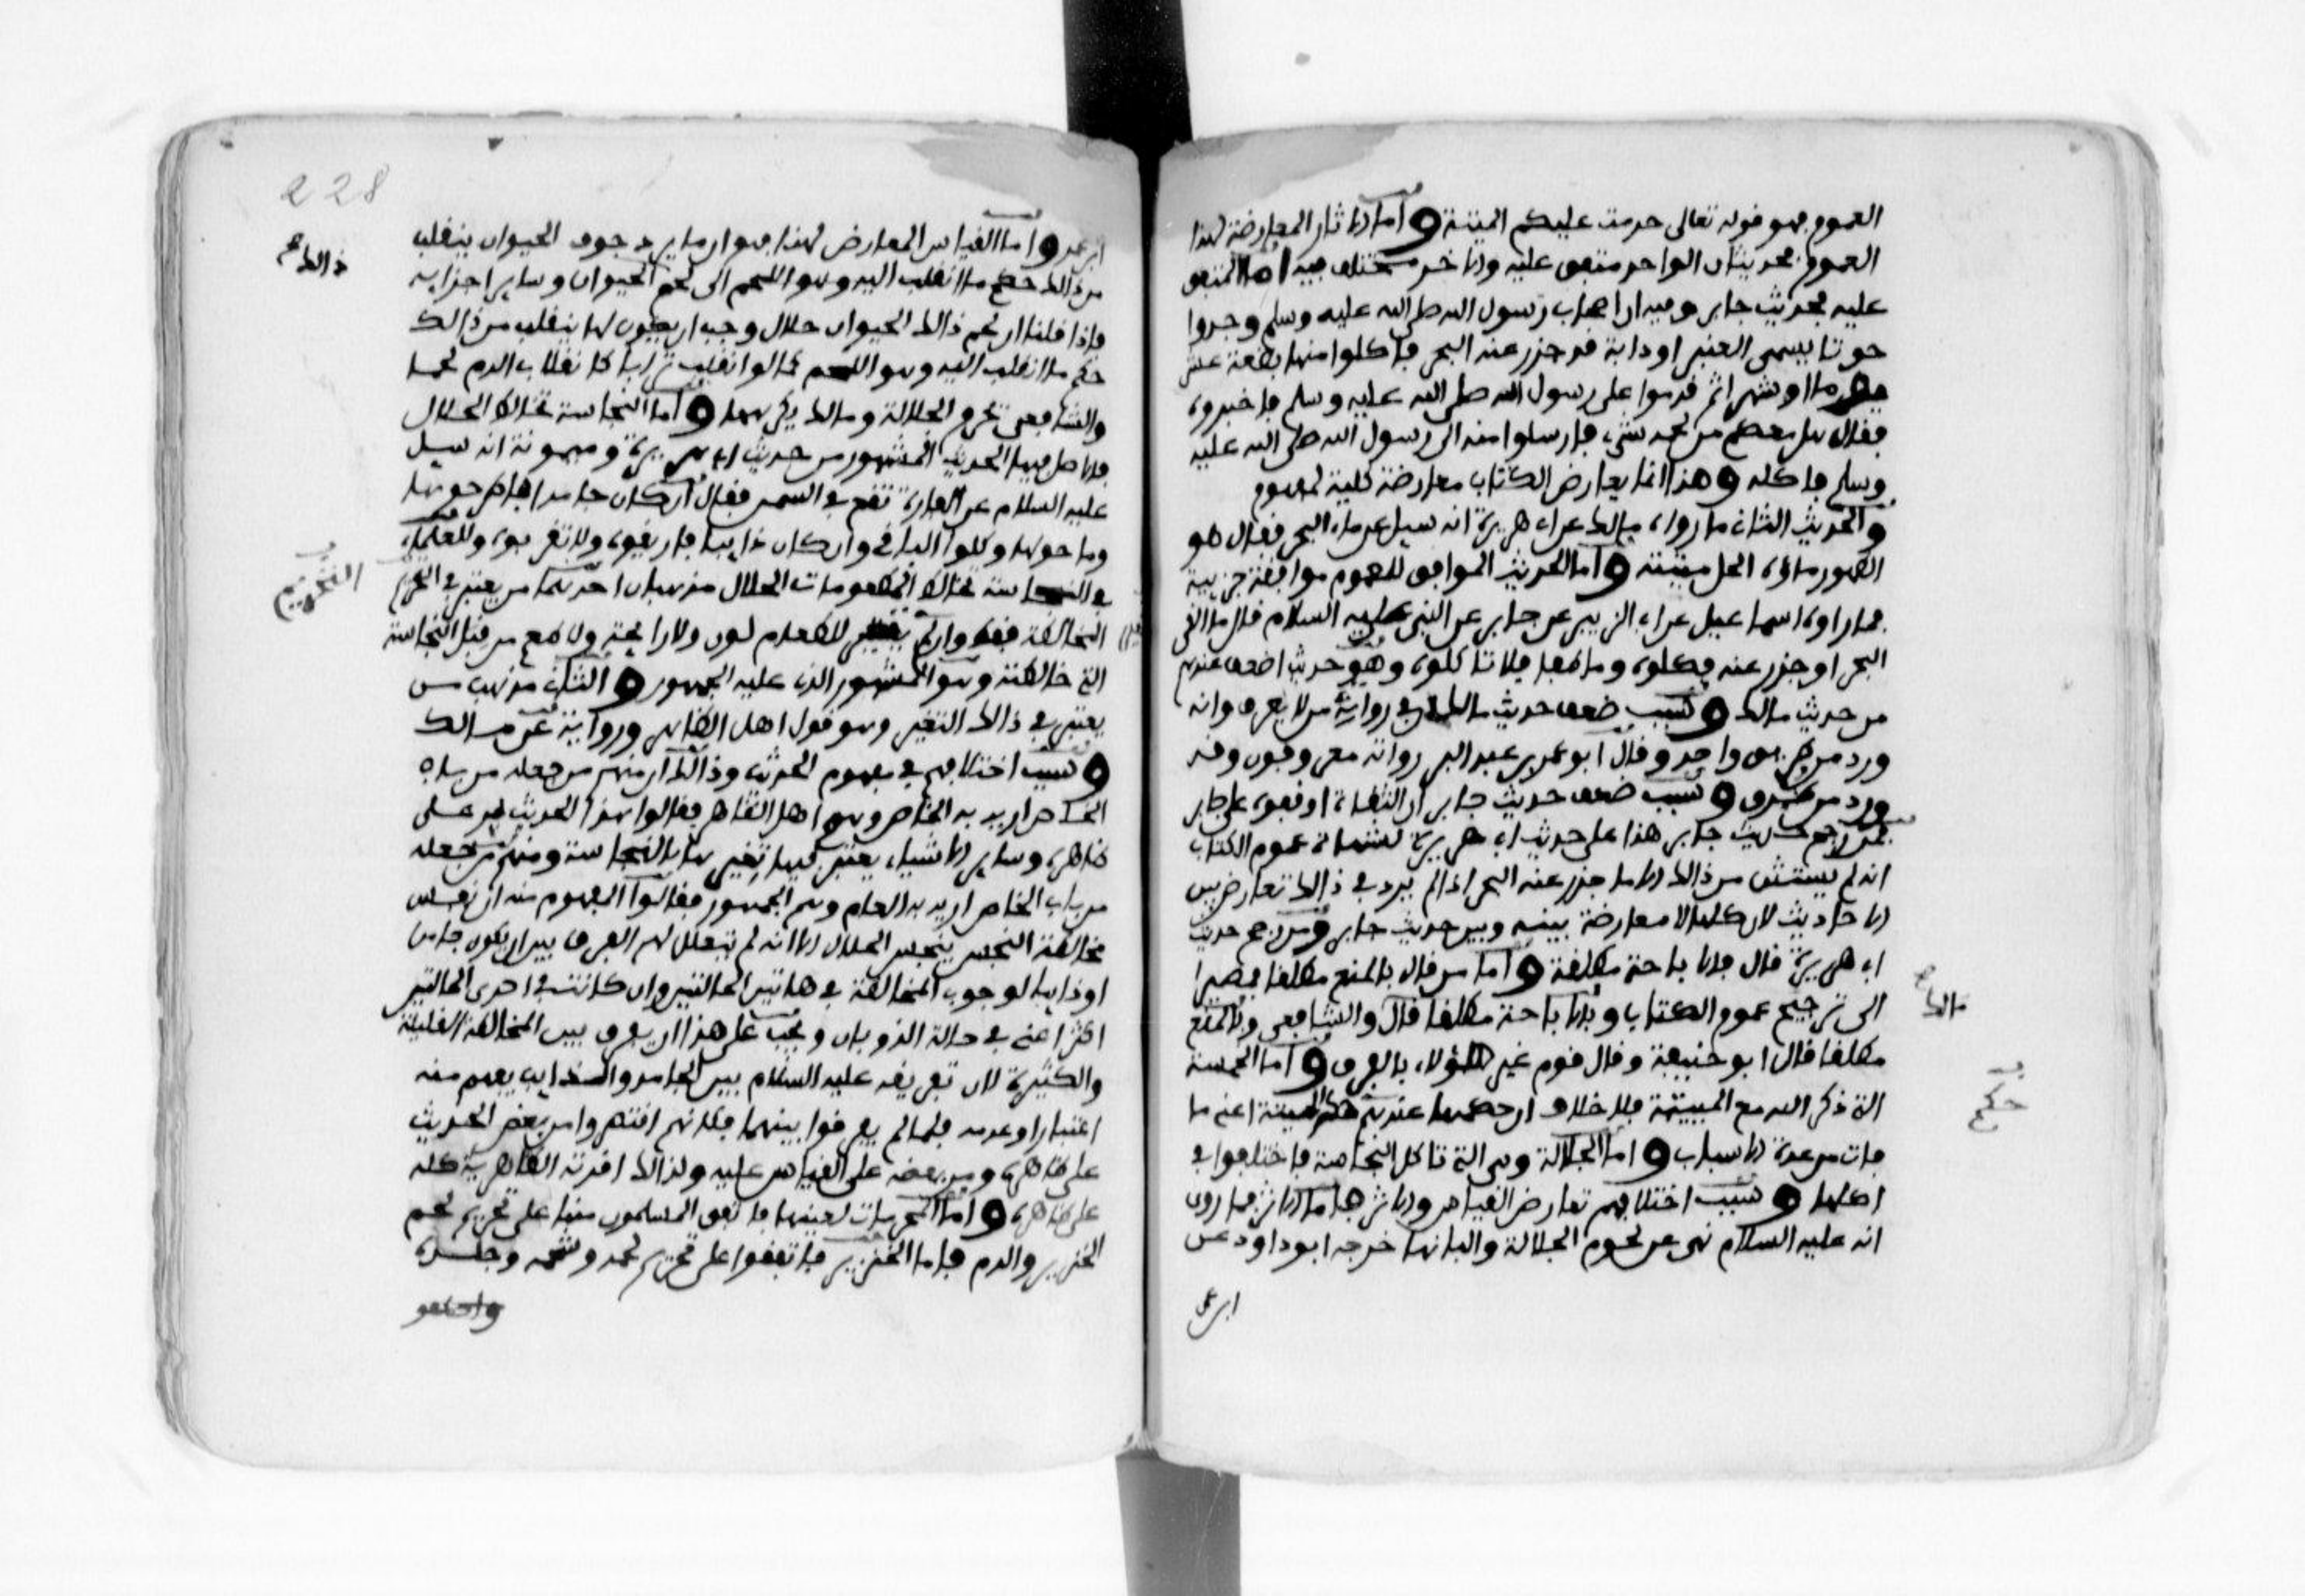 العموم فهو قوله تعالى حرمت عليكم الميتة واما الاثار المعارضة لهذا
العموم فحديثان الواحد متفق عليه والاخر مختلف فيه اما المتفق
عليه فحديث جابر وفيه ان اصحاب رسول الله صلى الله عليه وسلم وجدوا
حوتا يسمى العنبر او دابة قد جزر عنه البحر فاكلوا منها بضعة عشر
يوما او شهرا ثم قدموا على رسول الله صلى الله عليه وسلم فاخبروه
فقال هل معكم من لحمه شيء فارسلوا منه الى رسول الله صلى الله عليه
وسلم فاكله وهذا انما يعارض الكتاب معارضة كلية لمفهوم
والحديث الثاني ما رواه مالك عن ابي هريرة انه سيل عن ماء البحر فقال هو
الطهور ماؤه الحل ميتته واما الحديث الموافق للعموم موافقة جزيية
فما رواه اسماعيل عن ابي الزبير عن جابر عن النبي عليه السلام قال ما القى
البحر او جزر عنه فكلوه وما طفا فلا تاكلوه وهو حديث اضعف عندهم
من حديث مالك وسبب ضعف حديث مالك ان في رواته من لا يعرف وانه
ورد من طريق واحد وقال ابو عمر بن عبد البر رواته معروفون وقد
ورد من طرق وسبب ضعف حديث جابر ان الثقاة اوقفوه على جابر
فمن رجح حديث جابر هذا على حديث ابي هريرة لشهادة عموم الكتاب
انه لم يستثن من ذالك الا ما جزر عنه البحر اذ لم يرد في ذالك تعارض بين
الاحاديث لان كلها لا معارضة بينه وبين حديث جابر ومن رجح حديث
ابي هريرة قال بالاباحة مطلقة واما من قال بالمنع مطلقا فمصيرا
الى ترجيح عموم الكتاب وبالاباحة مطلقا قال والشافعي وبالمنع
مالك
مطلقا قال ابو حنيفة وقال قوم غير هاؤلاء بالفرق واما الخمسة
التي ذكر الله مع الميتة فلا خلاف ان حكمها عندهم حكم الميتة اعني ما
حكم
مات من عدة الاسباب واما الجلالة وهي التي تاكل النجاسة فاختلفوا في
اكلها وسبب اختلافهم تعارض القياس والاثر هاما الاثر فما روي
انه عليه السلام نهى عن لحوم الجلالة والبانها خرجه ابو داود عن
ابن عمر
228
ابن عمر واما القياس المعارض لهذا فهو ان ما يرد جوف الحيوان ينقلب
ذالك
من ذالك حكم ما انقلب اليه وهو اللحم الى لحم الحيوان وساير اجزايه
فاذا قلنا ان لحم ذالك الحيوان حلال وجب ان يكون لما ينقلب من ذالك
حكم ما انقلب اليه وهو اللحم كما لو انقلب ترابا كانقلاب الدم لحما
والشافعي تحرم الجلالة ومالك يكرهها واما النجاسة تخالط الحلال
فالاصل فيها الحديث المشهور من حديث ابي هريرة وميمونة انه سيل
عليه السلام عن الفارة تقع في السمن فقال ان كان جامدا فاطرحوها
وما حولها وكلوا الباقي وان كان ذايبا فاريقوه ولا تقربوه وللعلماء
في النجاسة تخالط المطعومات الحلال مذهبان احدهما من يعتبر في التحريم
التحريم
المخالطة فقط وان لم يتغير للطعام لون ولا رايحة ولا طعم من قبل النجاسة
التي خالطته وهو المشهور الذي عليه الجمهور والثاني مذهب من
يعتبر في ذالك التغير وهو قول اهل الظاهر ورواية عن مالك
وسبب اختلافهم في مفهوم الحديث وذالك ان منهم من جعله من باب
الخاص اريد به الخاص وهم اهل الظاهر فقالوا هذا الحديث يمر على
ظاهره وساير الاشياء يعتبر فيها تغيرها بالنجاسة ومنهم من جعله
من باب الخاص اريد به العام وهم الجمهور فقالوا المفهوم منه ان نفس
مخالطة النجس ينجس الحلال الا انه لم يتعلل لهم الفرق بين ان يكون جامدا
او ذايبا لوجوب المخالطة في هاتين الحالتين وان كانت في احدى الحالتين
اكثر اعني في حالة الذوبان ويجب على هذا ان يفرق بين المخالطة القليلة
والكثيرة لان تفريقه عليه السلام بين الجامد والذايب يفهم منه
اعتبارا وعدمه فلما لم يفرقوا بينهما فكانهم اقتصروا من بعض الحديث
على ظاهره ومن بعضه على القياس عليه ولذالك اقرته الظاهرية كله
على ظاهره واما المحرمات لعينها فاتفق المسلمون منها على تحريم لحم
الخنزير والدم فاما الخنزير فاتفقوا على تحريم لحمه وشحمه وجلده
واختلفو